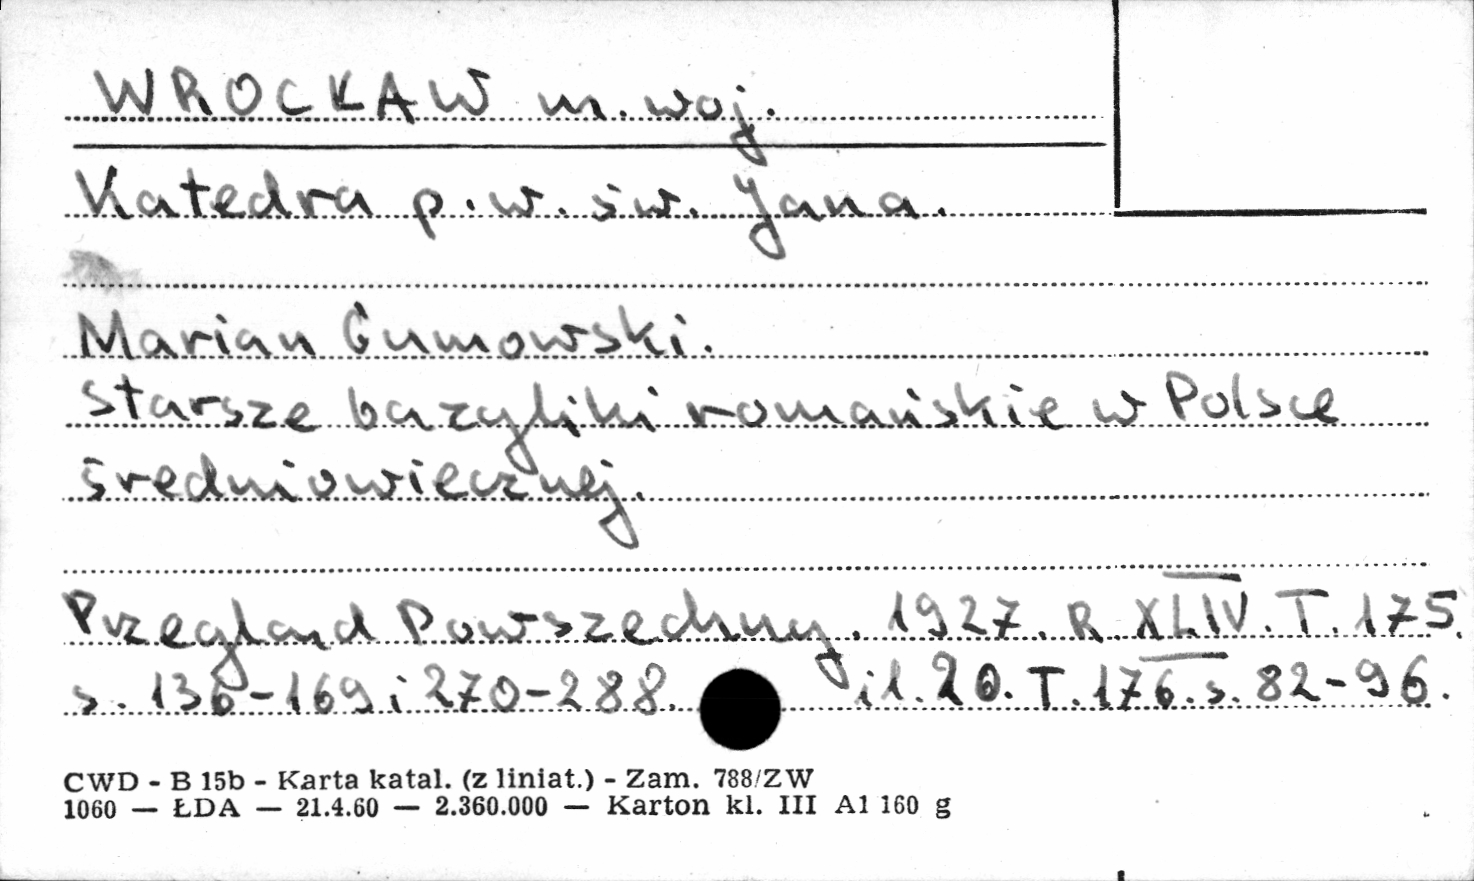 WROCŁAW m. woj.
Katedra p.w. św. Jana.
Marian Gumowski.
Starsze bazyliki romańskie w Polsce
średniowiecznej.
Przegląd Powszechny. 1927. R. XLIV. T. 175.
s. 136-169 i 270-288. il. 20. T. 176. s. 82-96.
CWD - B 15b - Karta katal. (z liniat.) - Zam. 788/ZW
1060 — ŁDA — 21.4.60 — 2.360.000 — Karton kl. III A1 160 g